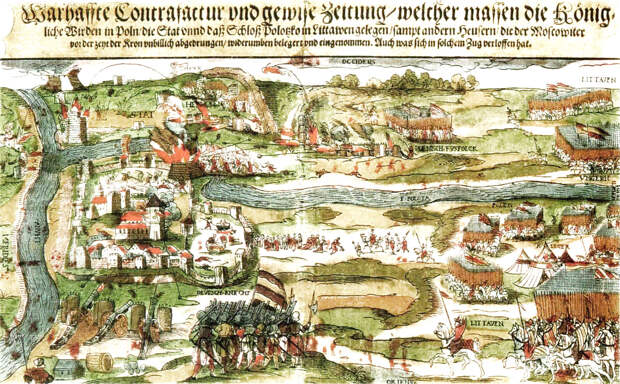 Warhaffte Contrafactur vnd gewise Zeitung/welcher massen die König-
liche Wirden in Poln/die Stat vnnd daß Schloß Polotzko in Littawen gelegen/sampt andern Heusern/die der Moscowiter
vor der zeyt der Kron vnbillich abgedrungen/widerumben belegert vnd eingenommen. Auch was sich in solchem Zug verloffen hat.
OCCIDENS
LITTAVEN
STAT
LITTAVEN